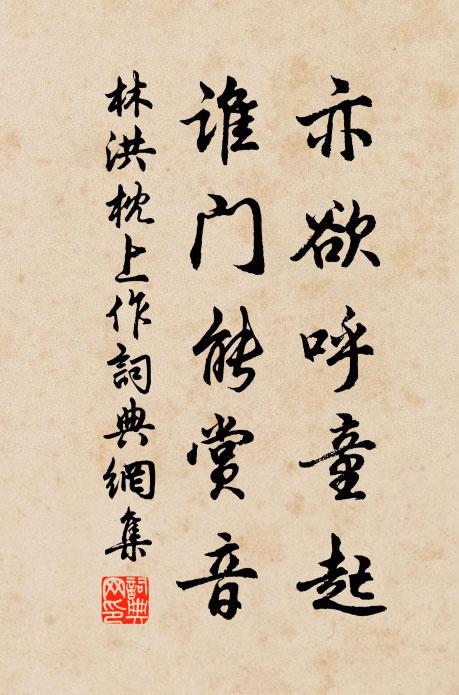 亦欲呼童起
谁门能赏音
林洪枕上作詞典網集
詞典网印